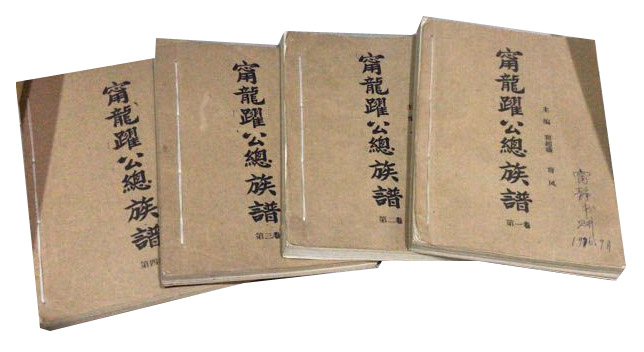 甯龍躍公總族譜
主編 甯 甯凤
第一卷
甯龍躍公總族譜
第二卷
甯龍躍公總族譜
第三卷
甯龍躍公總族譜
第四